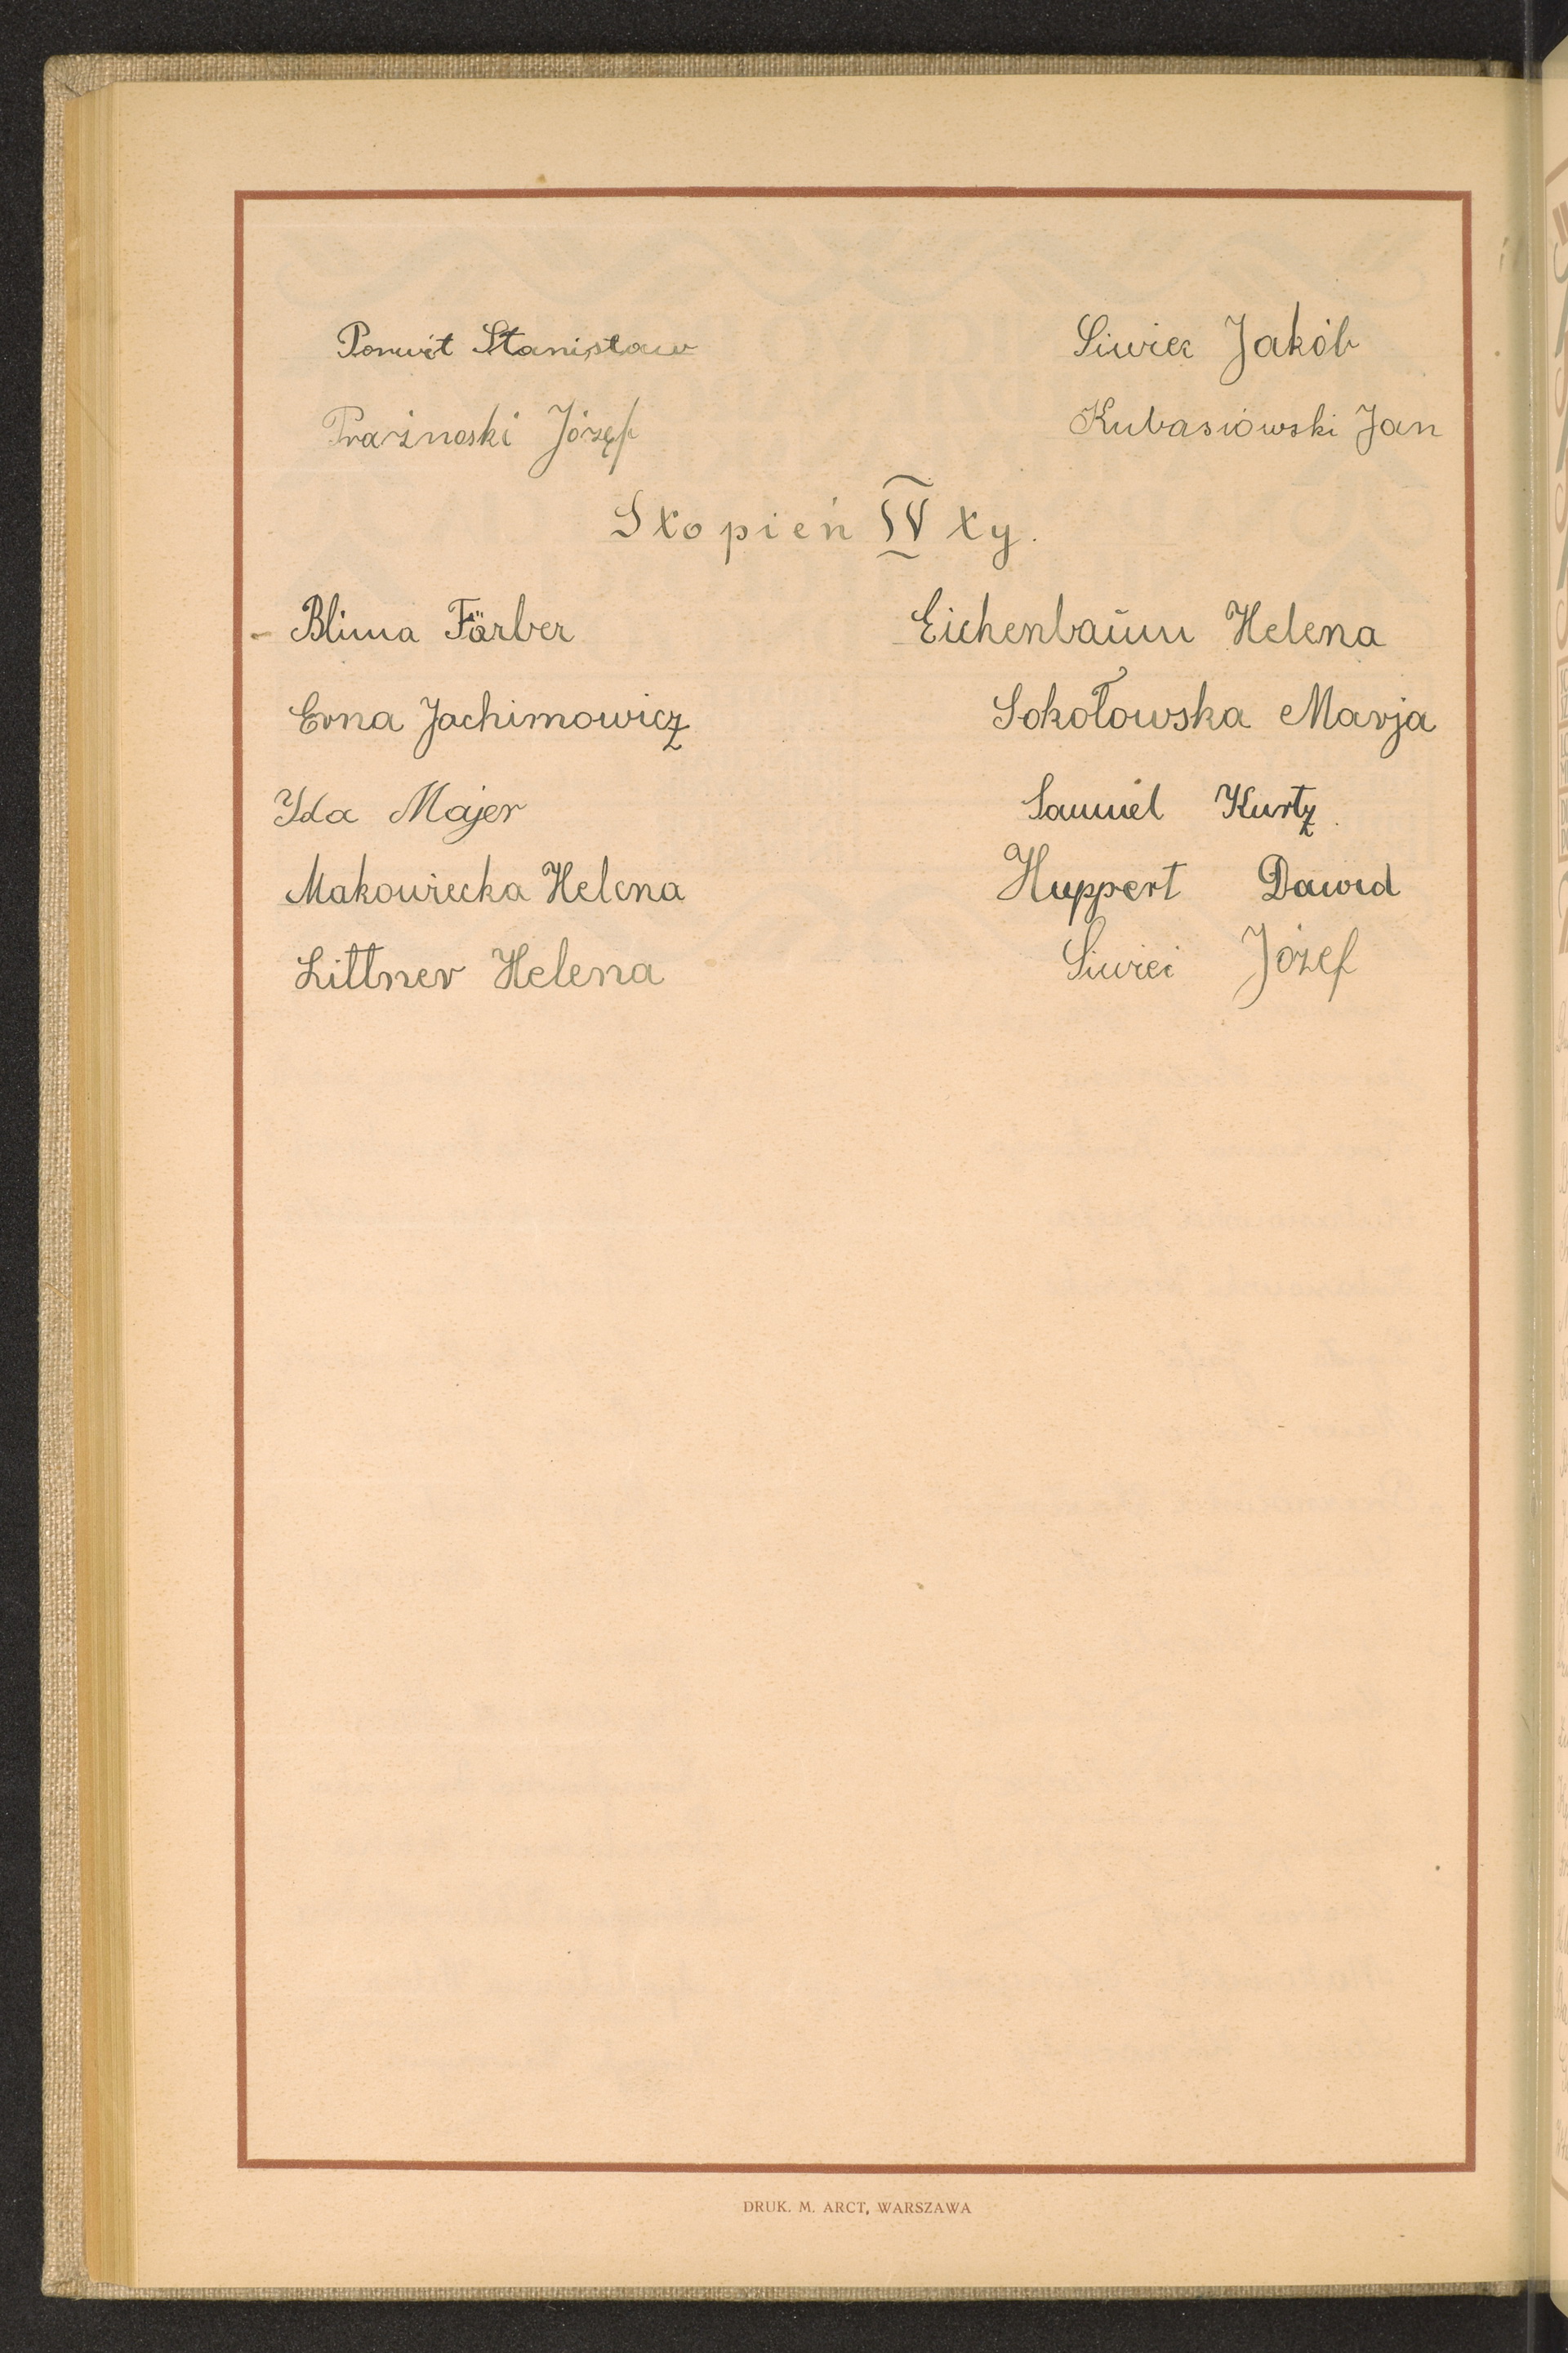 Porwit Stanisław Siwiec Jakób
Prażnoski Józef Kubasiówski Jan
Stopień IV ty.
Blima Färber Eichenbaŭm Helena
Erna Jachimowicz Sokołowska Marja
Ida Majer Samuel Kurtz
Makowiecka Helena Huppert Dawid
Littner Helena Siwiec Józef
DRUK. M. ARCT, WARSZAWA